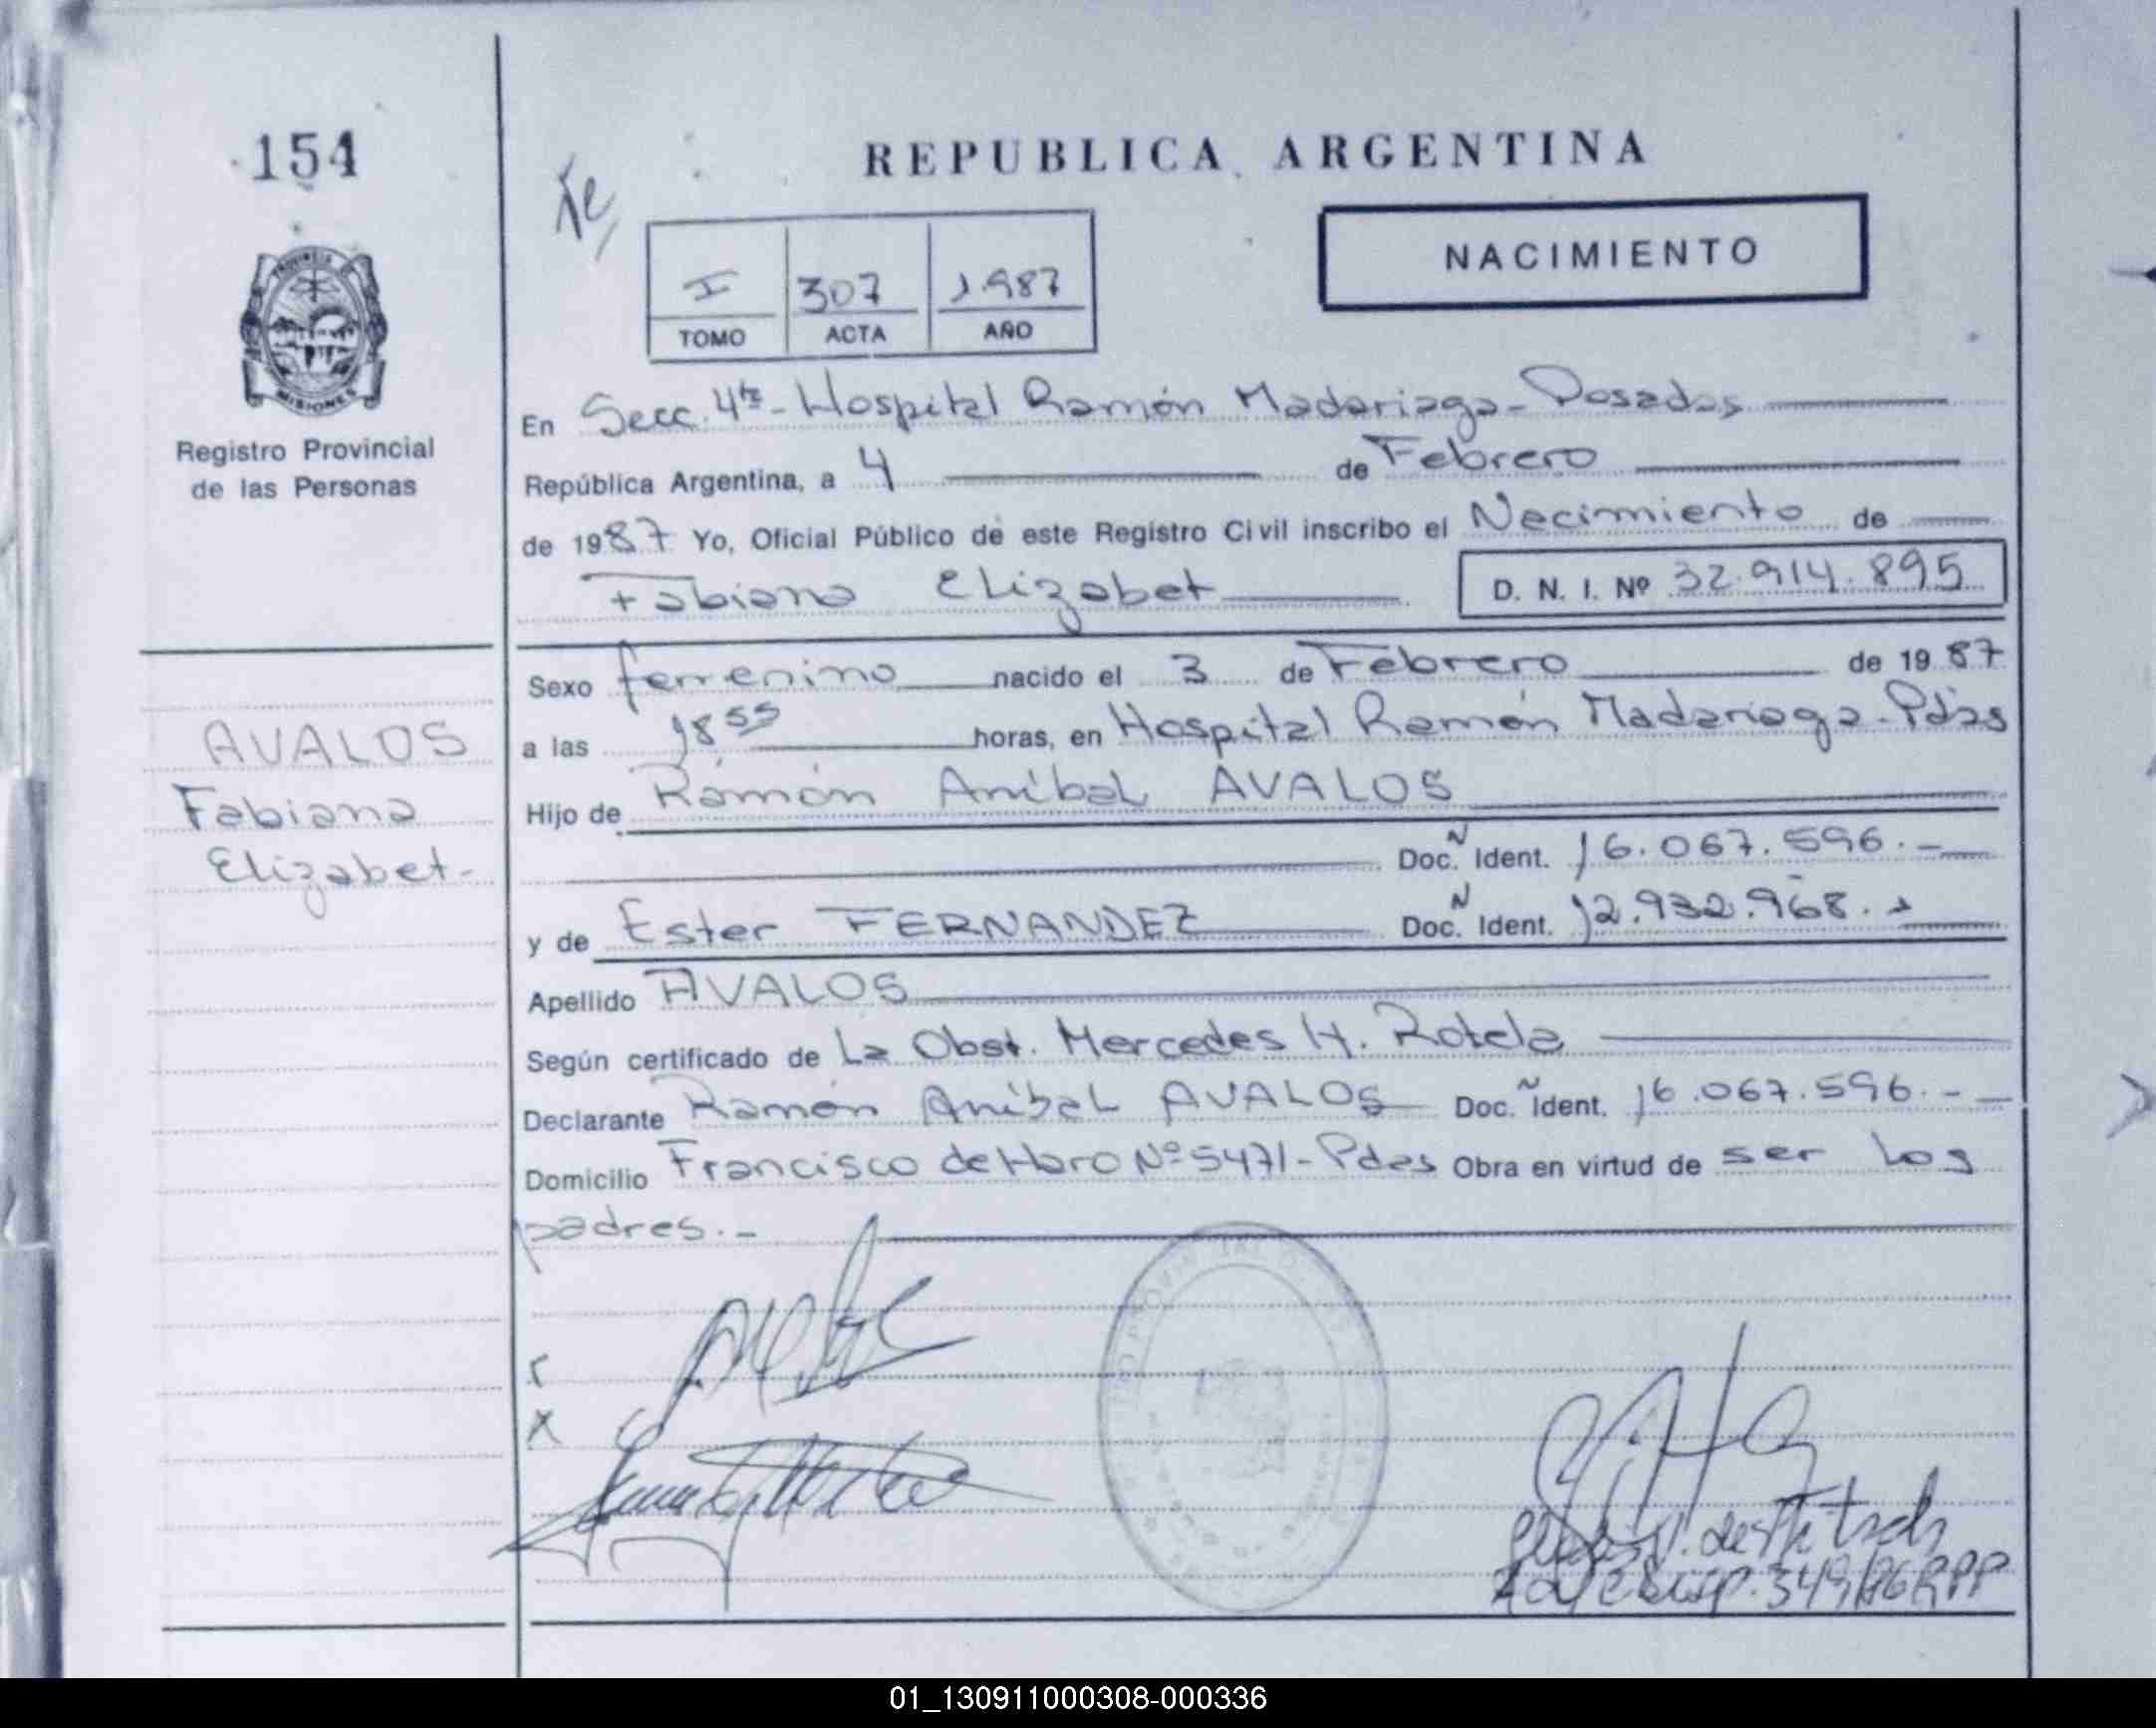 154
REPUBLICA ARGENTINA
NACIMIENTO
I 307 1.987
TOMO ACTA AÑO
PROVINCIA DE
MISIONES
Registro Provincial
de las Personas
En Secc. 4ta - Hospital Ramón Madariaga - Posadas
República Argentina, a 4 de Febrero
de 1987 Yo, Oficial Público de este Registro Civil inscribo el Nacimiento de
Fabiana Elizabet D. N. I. Nº 32.914.895
Sexo femenino nacido el 3 de Febrero de 19 87
a las 18 55 horas, en Hospital Ramón Madariaga - Pdas
Hijo de Ramón Aníbal AVALOS
Doc. N Ident. 16.067.596.-
y de Ester FERNANDEZ Doc. N Ident. 12.932.968.
Apellido AVALOS
Según certificado de La Obst. Mercedes H. Rotela
Declarante Ramón Aníbal AVALOS Doc. Ident. 16.067.596.-
Domicilio Francisco de Haro Nº 5471 - Pdas Obra en virtud de ser los
padres.-
AVALOS
Fabiana
Elizabet-
X
349/86 RPP
01_130911000308-000336